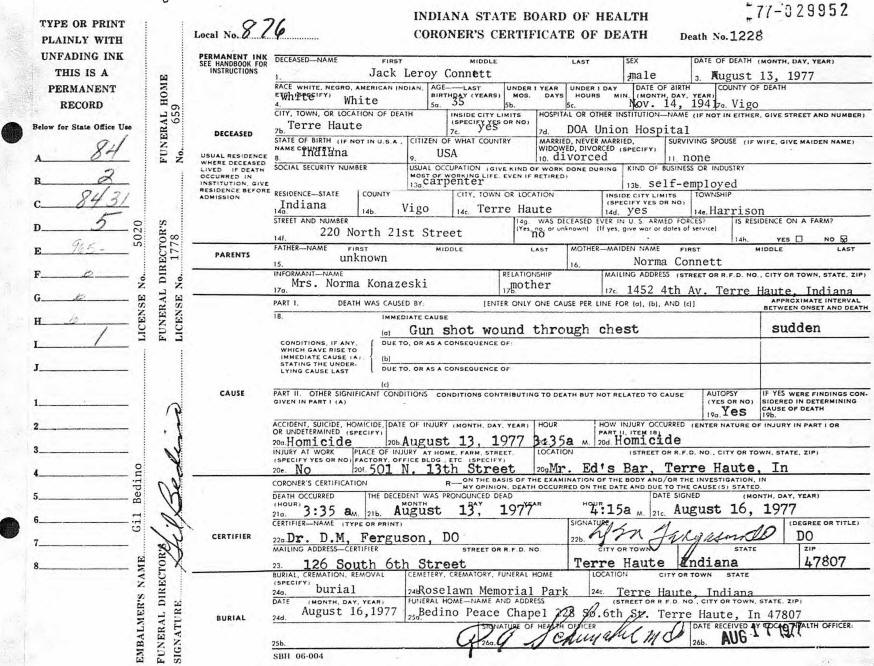 INDIANA STATE BOARD OF HEALTH
CORONER'S CERTIFICATE OF DEATH
77-029952
Local No. 876
Death No. 1228
TYPE OR PRINT
PLAINLY WITH
UNFADING INK
THIS IS A
PERMANENT
RECORD
Below for State Office Use
A 84
B 2
C 8431
D 5
E 965-
F 0
G
H
I 1
J
1
2
3
4
5
6
7
8
EMBALMER'S NAME Gil Bedino LICENSE No. 5020
FUNERAL DIRECTOR'S SIGNATURE Gil Bedino
FUNERAL DIRECTOR'S LICENSE No. 1778
FUNERAL HOME No. 659
PERMANENT INK
SEE HANDBOOK FOR
INSTRUCTIONS
DECEASED
USUAL RESIDENCE
WHERE DECEASED
LIVED IF DEATH
OCCURRED IN
INSTITUTION, GIVE
RESIDENCE BEFORE
ADMISSION
DECEASED—NAME FIRST MIDDLE LAST SEX DATE OF DEATH (MONTH, DAY, YEAR)
1. Jack Leroy Connett male 3. August 13, 1977
RACE WHITE, NEGRO, AMERICAN INDIAN, AGE—LAST BIRTHDAY (YEARS) UNDER 1 YEAR MOS. DAYS UNDER 1 DAY HOURS MIN. DATE OF BIRTH (MONTH, DAY, YEAR) COUNTY OF DEATH
4. White White 5a. 35 5b. 5c. Nov. 14, 1941 7a. Vigo
CITY, TOWN, OR LOCATION OF DEATH INSIDE CITY LIMITS (SPECIFY YES OR NO) HOSPITAL OR OTHER INSTITUTION—NAME (IF NOT IN EITHER, GIVE STREET AND NUMBER)
7b. Terre Haute 7c. yes 7d. DOA Union Hospital
STATE OF BIRTH (IF NOT IN U.S.A., NAME COUNTRY) CITIZEN OF WHAT COUNTRY MARRIED, NEVER MARRIED, WIDOWED, DIVORCED (SPECIFY) SURVIVING SPOUSE (IF WIFE, GIVE MAIDEN NAME)
8. Indiana 9. USA 10. divorced 11. none
SOCIAL SECURITY NUMBER USUAL OCCUPATION (GIVE KIND OF WORK DONE DURING MOST OF WORKING LIFE, EVEN IF RETIRED) KIND OF BUSINESS OR INDUSTRY
13a carpenter 13b. self-employed
RESIDENCE—STATE COUNTY CITY, TOWN OR LOCATION INSIDE CITY LIMITS (SPECIFY YES OR NO) TOWNSHIP
14a. Indiana 14b. Vigo 14c. Terre Haute 14d. yes 14e. Harrison
STREET AND NUMBER 14g. WAS DECEASED EVER IN U.S. ARMED FORCES? (Yes, no, or unknown) (If yes, give war or dates of service) IS RESIDENCE ON A FARM?
14f. 220 North 21st Street no 14h. YES NO
PARENTS
FATHER—NAME FIRST MIDDLE LAST MOTHER—MAIDEN NAME FIRST MIDDLE LAST
15. unknown 16. Norma Connett
INFORMANT—NAME RELATIONSHIP MAILING ADDRESS (STREET OR R.F.D. NO., CITY OR TOWN, STATE, ZIP)
17a. Mrs. Norma Konazeski 17b. mother 17c. 1452 4th Av. Terre Haute, Indiana
CAUSE
PART I. DEATH WAS CAUSED BY: [ENTER ONLY ONE CAUSE PER LINE FOR (a), (b), AND (c)] APPROXIMATE INTERVAL BETWEEN ONSET AND DEATH
18. IMMEDIATE CAUSE
(a) Gun shot wound through chest sudden
CONDITIONS, IF ANY, WHICH GAVE RISE TO IMMEDIATE CAUSE (A) STATING THE UNDERLYING CAUSE LAST
DUE TO, OR AS A CONSEQUENCE OF:
(b)
DUE TO, OR AS A CONSEQUENCE OF:
(c)
PART II. OTHER SIGNIFICANT CONDITIONS CONDITIONS CONTRIBUTING TO DEATH BUT NOT RELATED TO CAUSE GIVEN IN PART I (A) AUTOPSY (YES OR NO) IF YES WERE FINDINGS CONSIDERED IN DETERMINING CAUSE OF DEATH
19a. Yes 19b.
ACCIDENT, SUICIDE, HOMICIDE, OR UNDETERMINED (SPECIFY) DATE OF INJURY (MONTH, DAY, YEAR) HOUR HOW INJURY OCCURRED (ENTER NATURE OF INJURY IN PART I OR PART II, ITEM 18)
20a. Homicide 20b. August 13, 1977 3:35a M. 20d. Homicide
INJURY AT WORK (SPECIFY YES OR NO) PLACE OF INJURY AT HOME, FARM, STREET, FACTORY, OFFICE BLDG., ETC (SPECIFY) LOCATION (STREET OR R.F.D. NO., CITY OR TOWN, STATE)
20e. No 20f. 501 N. 13th Street 20g. Mr. Ed's Bar, Terre Haute, In
CERTIFIER
CORONER'S CERTIFICATION ON THE BASIS OF THE EXAMINATION OF THE BODY AND/OR THE INVESTIGATION, IN MY OPINION, DEATH OCCURRED ON THE DATE AND DUE TO THE CAUSE(S) STATED.
DEATH OCCURRED (HOUR) THE DECEDENT WAS PRONOUNCED DEAD MONTH DAY YEAR HOUR DATE SIGNED (MONTH, DAY, YEAR)
21a. 3:35 a M. 21b. August 13, 1977 4:15a M. 21c. August 16, 1977
CERTIFIER—NAME (TYPE OR PRINT) SIGNATURE (DEGREE OR TITLE)
22a Dr. D.M, Ferguson, DO 22b. DO
MAILING ADDRESS—CERTIFIER STREET OR R.F.D. NO. CITY OR TOWN STATE ZIP
23. 126 South 6th Street Terre Haute Indiana 47807
BURIAL
BURIAL, CREMATION, REMOVAL (SPECIFY) CEMETERY, CREMATORY, FUNERAL HOME LOCATION CITY OR TOWN STATE
24a. burial 24b Roselawn Memorial Park 24c. Terre Haute, Indiana
DATE (MONTH, DAY, YEAR) FUNERAL HOME—NAME AND ADDRESS (STREET OR R.F.D. NO., CITY OR TOWN, STATE, ZIP)
24d. August 16,1977 25a. Bedino Peace Chapel 228 So.6th St. Terre Haute, In 47807
25b. SIGNATURE OF HEALTH OFFICER 26a. DATE RECEIVED BY LOCAL HEALTH OFFICER.
26b. AUG 17 1977
SBH 06-004